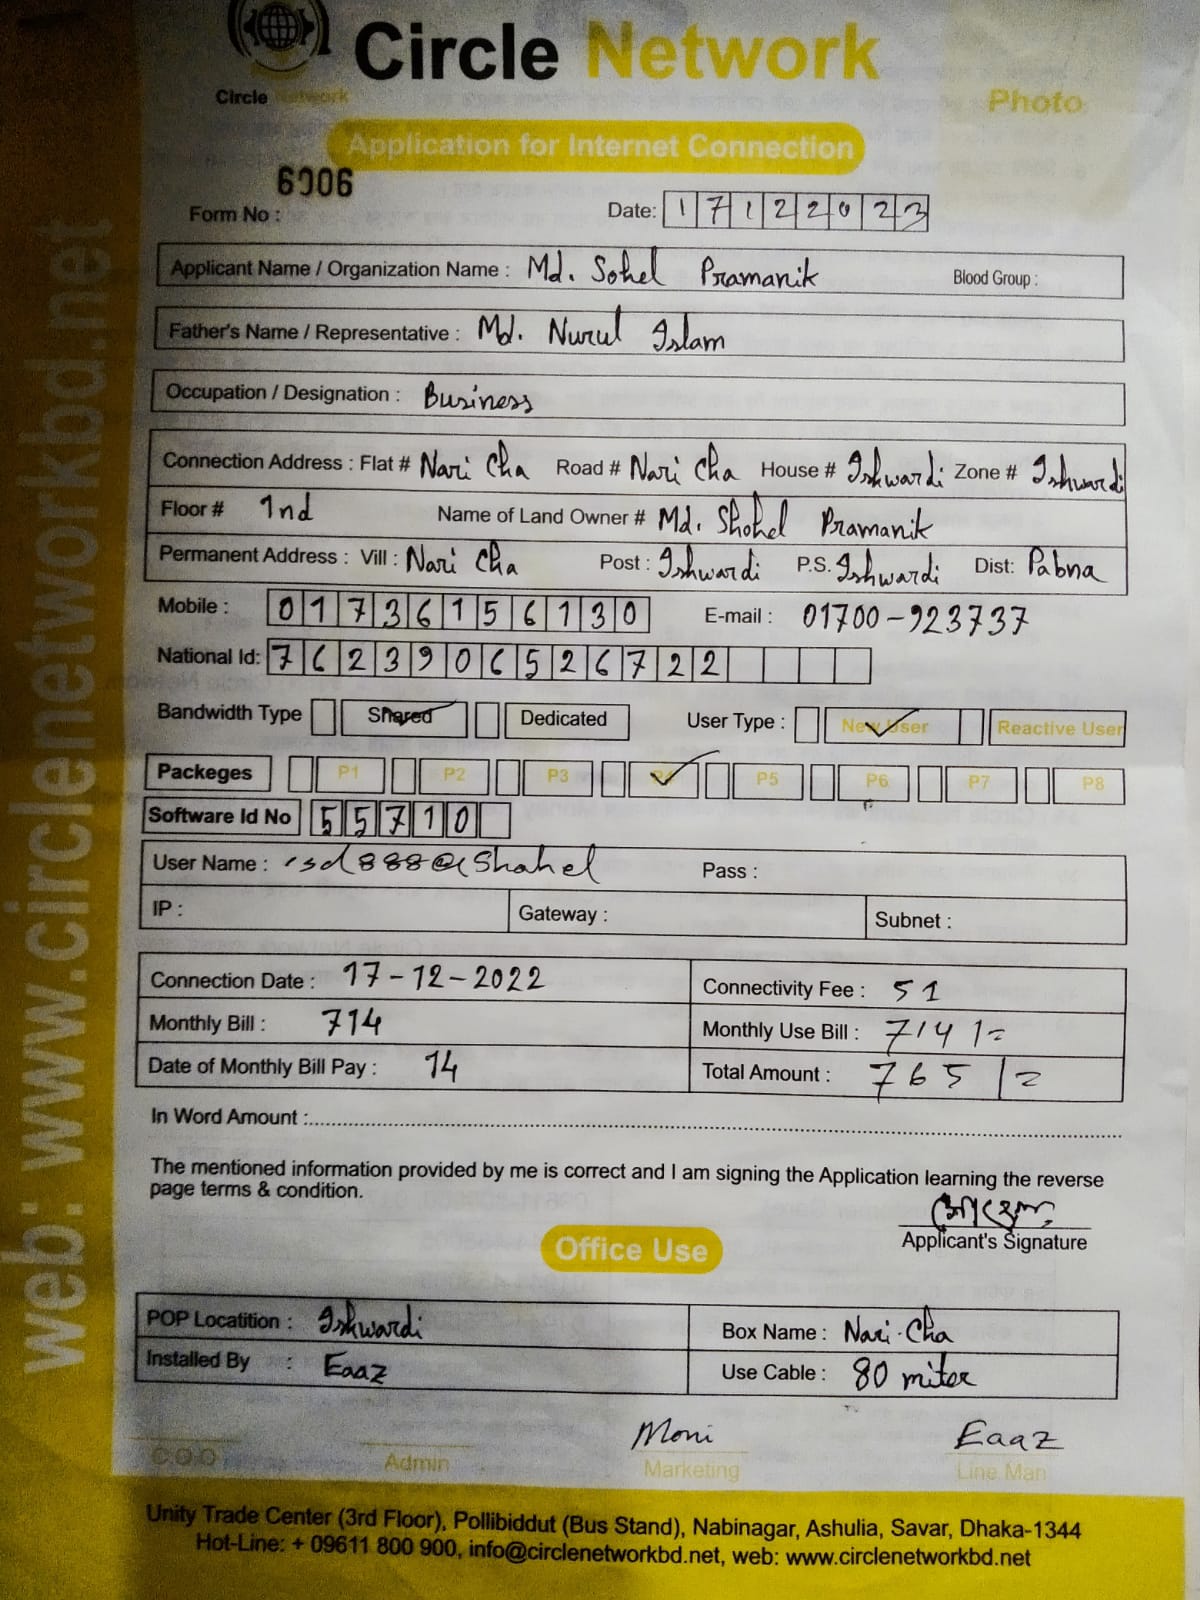 Circle Network
Circle Network
Photo
Application for Internet Connection
6906
Form No :
Date: 17122023
Applicant Name / Organization Name : Md. Sohel Pramanik Blood Group :
Father's Name / Representative : Md. Nurul Islam
Occupation / Designation : Business
Connection Address : Flat # Nari Cha Road # Nari Cha House # Ishwardi Zone # Ishwardi
Floor # 1nd Name of Land Owner # Md. Shohel Pramanik
Permanent Address : Vill : Nari Cha Post : Ishwardi P.S. Ishwardi Dist: Pabna
Mobile : 01736156130 E-mail : 01700-923737
National Id: 7623906526722
Bandwidth Type Shared Dedicated User Type : New User Reactive User
Packeges P1 P2 P3 P4 P5 P6 P7 P8
Software Id No 55710
User Name : isd888@Shahel Pass :
IP : Gateway : Subnet :
Connection Date : 17-12-2022 Connectivity Fee : 51
Monthly Bill : 714 Monthly Use Bill : 714/=
Date of Monthly Bill Pay : 14 Total Amount : 765/=
In Word Amount :
The mentioned information provided by me is correct and I am signing the Application learning the reverse
page terms & condition.
Applicant's Signature
Office Use
POP Locatition : Ishwardi Box Name : Nari-Cha
Installed By : Eaaz Use Cable : 80 miter
Moni Eaaz
C.O.O Admin Marketing Line Man
Unity Trade Center (3rd Floor), Pollibiddut (Bus Stand), Nabinagar, Ashulia, Savar, Dhaka-1344
Hot-Line: + 09611 800 900, info@circlenetworkbd.net, web: www.circlenetworkbd.net
web: www.circlenetworkbd.net